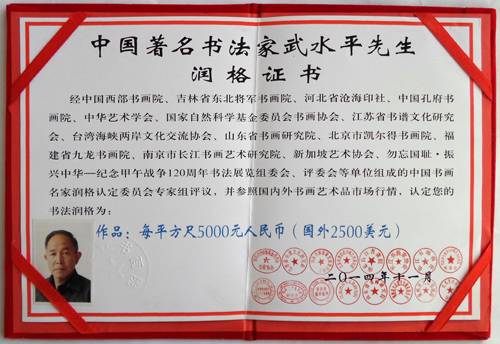 中国著名书法家武水平先生
润格证书
经中国西部书画院、吉林省东北将军书画院、河北省沧海印社、中国孔府书
画院、中华艺术学会、国家自然科学基金委员会书画协会、江苏省书谱文化研究
会、台湾海峡两岸文化交流协会、山东省书画研究院、北京市凯尔得书画院、福
建省九龙书画院、南京市长江书画艺术研究院、新加坡艺术协会、勿忘国耻·振
兴中华—纪念甲午战争120周年书法展览组委会、评委会等单位组成的中国书画
名家润格认定委员会专家组评议，并参照国内外书画艺术品市场行情，认定您的
书法润格为：
作品：每平方尺5000元人民币（国外2500美元）
二〇一四年十一月